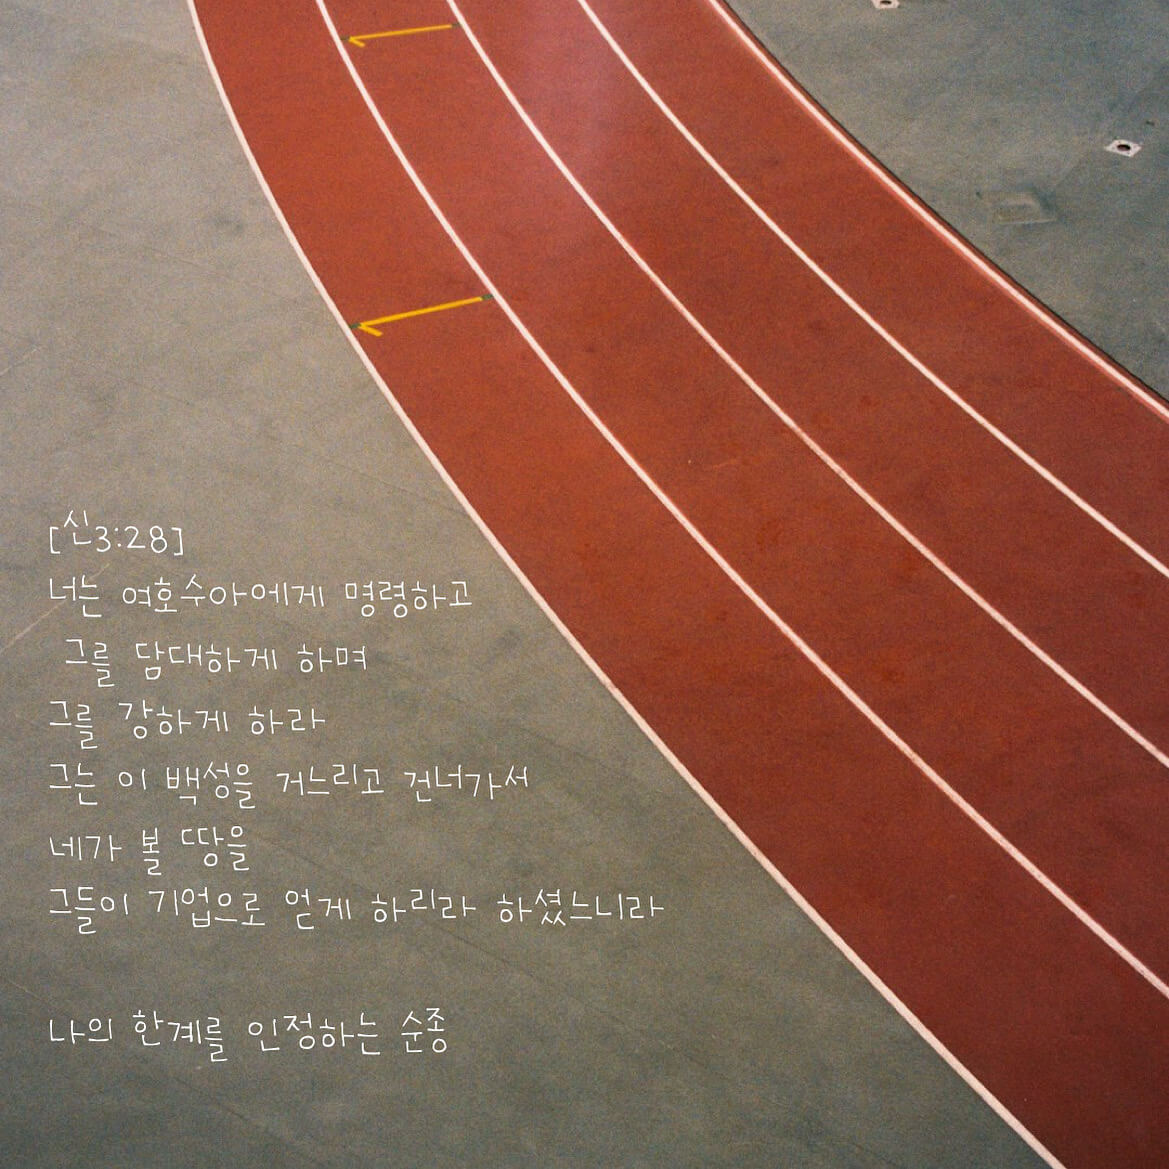 [신3:28]
너는 여호수아에게 명령하고
그를 담대하게 하며
그를 강하게 하라
그는 이 백성을 거느리고 건너가서
네가 볼 땅을
그들이 기업으로 얻게 하리라 하셨느니라
나의 한계를 인정하는 순종